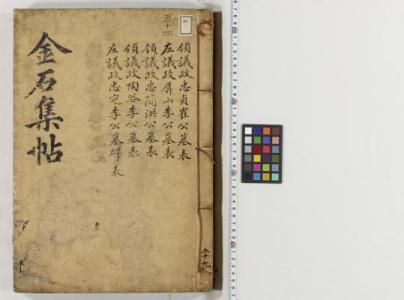 領議政忠貞崔公墓表
左議政屏山李公墓表
領議政忠簡洪公墓表
領議政陶谷李公墓表
左議政忠定李公墓碑表
金石集帖
五十九